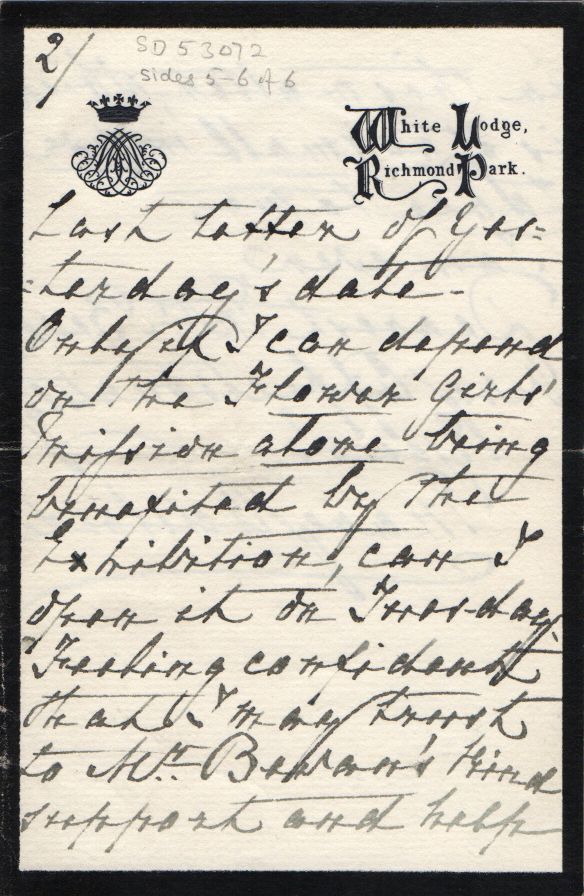 2/
SD 53072
sides 5-6 of 6
White Lodge,
Richmond Park.
last letter of Yes=
=terday's date.
Only if I can depend
on the Flower Girls'
Mission alone being
benefited by the
Exhibition, can I
open it on Tuesday.
Feeling confident
that I may trust
to Mr. Bevan's kind
support and help